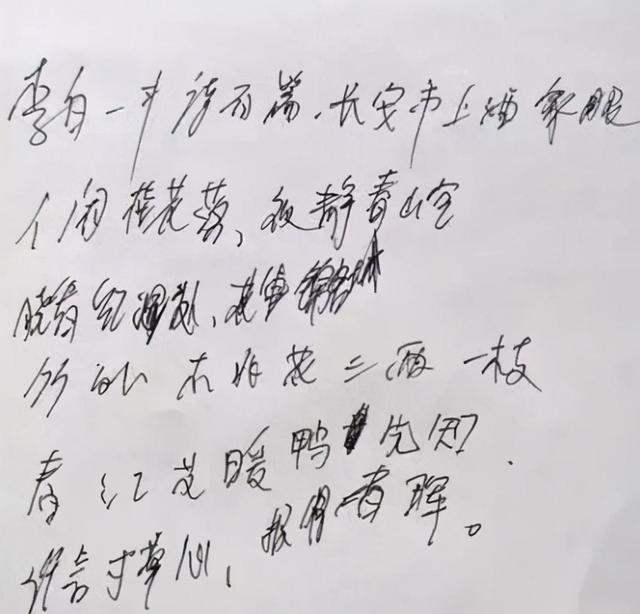 李白一斗诗百篇，长安市上酒家眠
人闲桂花落，夜静春山空
晓看红湿处，花重锦官城
竹外桃花三两枝
春江花暖鸭先知
谁言寸草心，报得春晖。